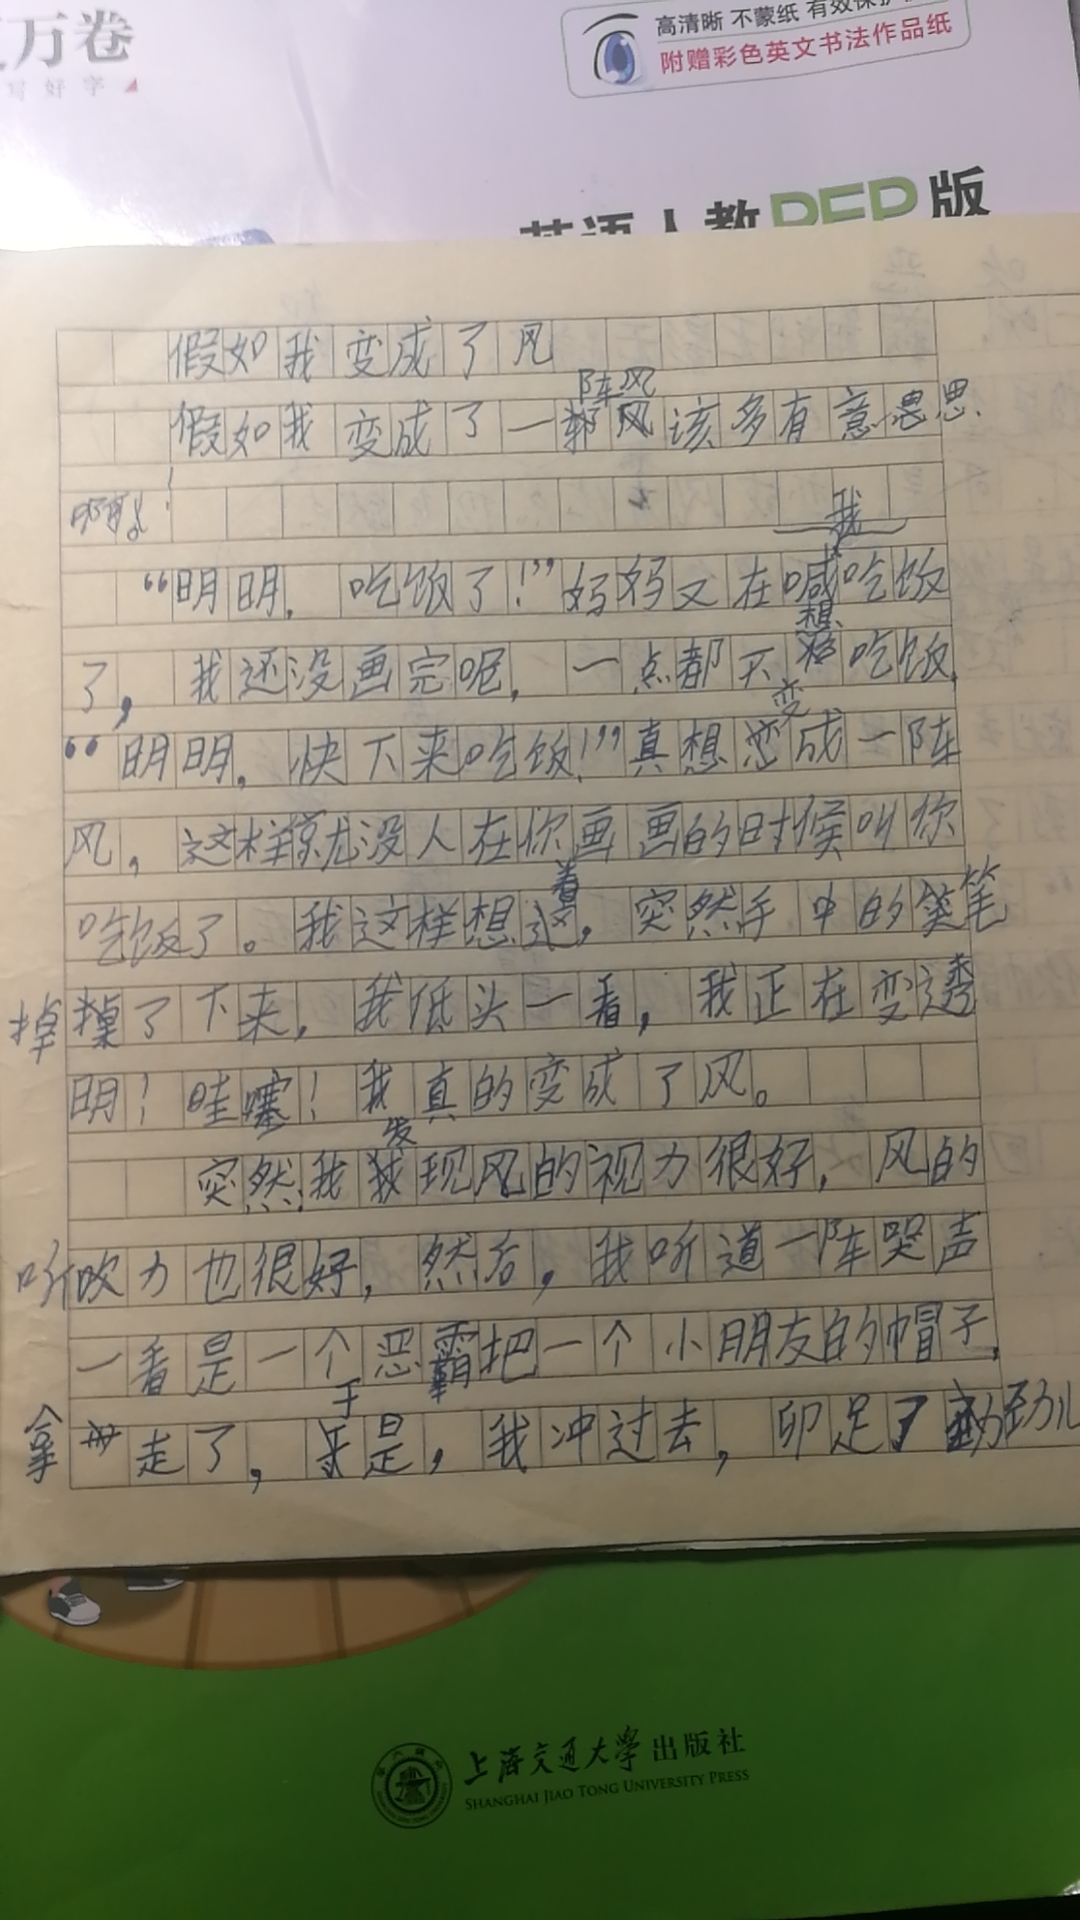 万卷
写好字
高清晰 不蒙纸 有效保护
附赠彩色英文书法作品纸
英语人教PEP版
假如我变成了风
阵风
假如我变成了一风该多有意思思
啊！
我
“明明，吃饭了！”妈妈又在喊吃饭
想
了，我还没画完呢，一点都不吃饭，
变
“明明，快下来吃饭！”真想恋成一阵
风，这样就没人在你画画的时候叫你
着
吃饭了。我这样想，突然手中的笔
掉掉了下来，我低头一看，我正在变透
明！哇噻！我真的变成了风。
发
突然我现风的视力很好，风的
听吹力也很好，然后，我听道一阵哭声
一看是一个恶霸把一个小朋友的帽子，
于
拿走了，是，我冲过去，卯足了劲儿
上海交通大学出版社
SHANGHAI JIAO TONG UNIVERSITY PRESS